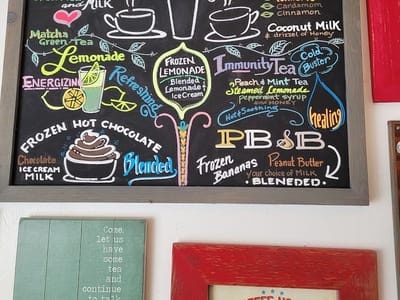 and MILK
Cardamom
Cinnamon
Coconut MILK
& drizzel of Honey
Matcha
Green Tea
Lemonade
ENERGIZING
Refreshing
FROZEN
LEMONADE
Blended
Lemonade &
Ice Cream
Immunity Tea
Cold
Buster
Peach & Mint Tea
Steamed Lemonade
Peppermint syrup
AND HONEY
Hot & Soothing
Healing
FROZEN HOT CHOCOLATE
Chocolate
ICE CREAM
MILK
Blended
PB&B
Frozen
Bananas
Peanut Butter
your choice of MILK
BLENEDED.
Come,
let us
have
some
tea
and
continue
to talk